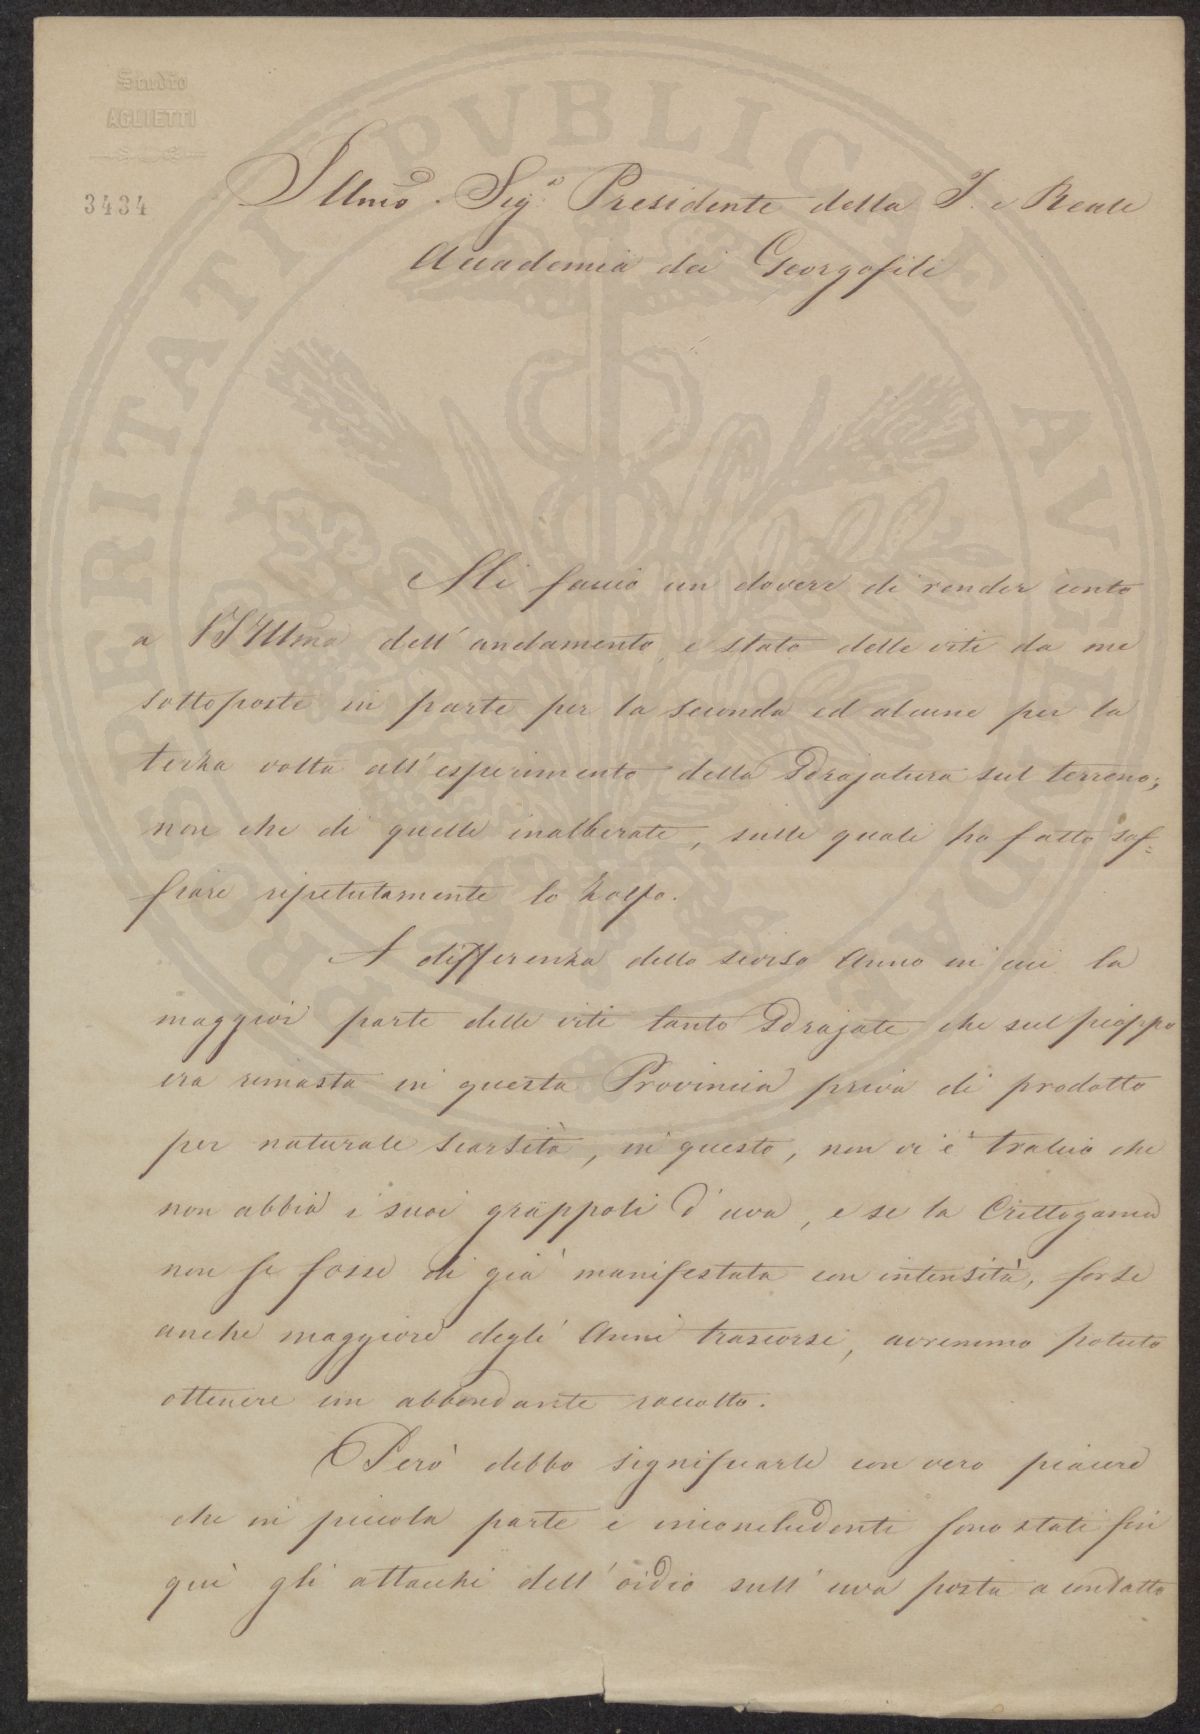 Studio
AGLIETTI
3434
Illmo. Sigr. Presidente della I. e Reale
Accademia dei Georgofili
Mi faccio un dovere di render conto
a VS Illma dell'andamento, e stato delle viti da me
sottoposte in parte per la seconda ed alcune per la
terza volta all'esperimento della Sdrajatura sul terreno;
non che di quelle inalberate, sulle quali ho fatto sof=
fiare ripetutamente lo zolfo.
A differenza dello scorso Anno in cui la
maggior parte delle viti tanto Sdrajate che sul pioppo
era rimasta in questa Provincia priva di prodotto
per naturale scarsità, in questo, non vi è tralcio che
non abbia i suoi grappoli d'uva, e se la Crittogama
non si fosse di già manifestata con intensità, forse
anche maggiore degli Anni trascorsi, avremmo potuto
ottenere un abbondante raccolto.
Però debbo significarle con vero piacere
che in piccola parte e inconcludenti sono stati fin
quì gli attacchi dell'oidio sull'uva posta a contatto
PROSPERITATI PVBLICAE AVGENDAE